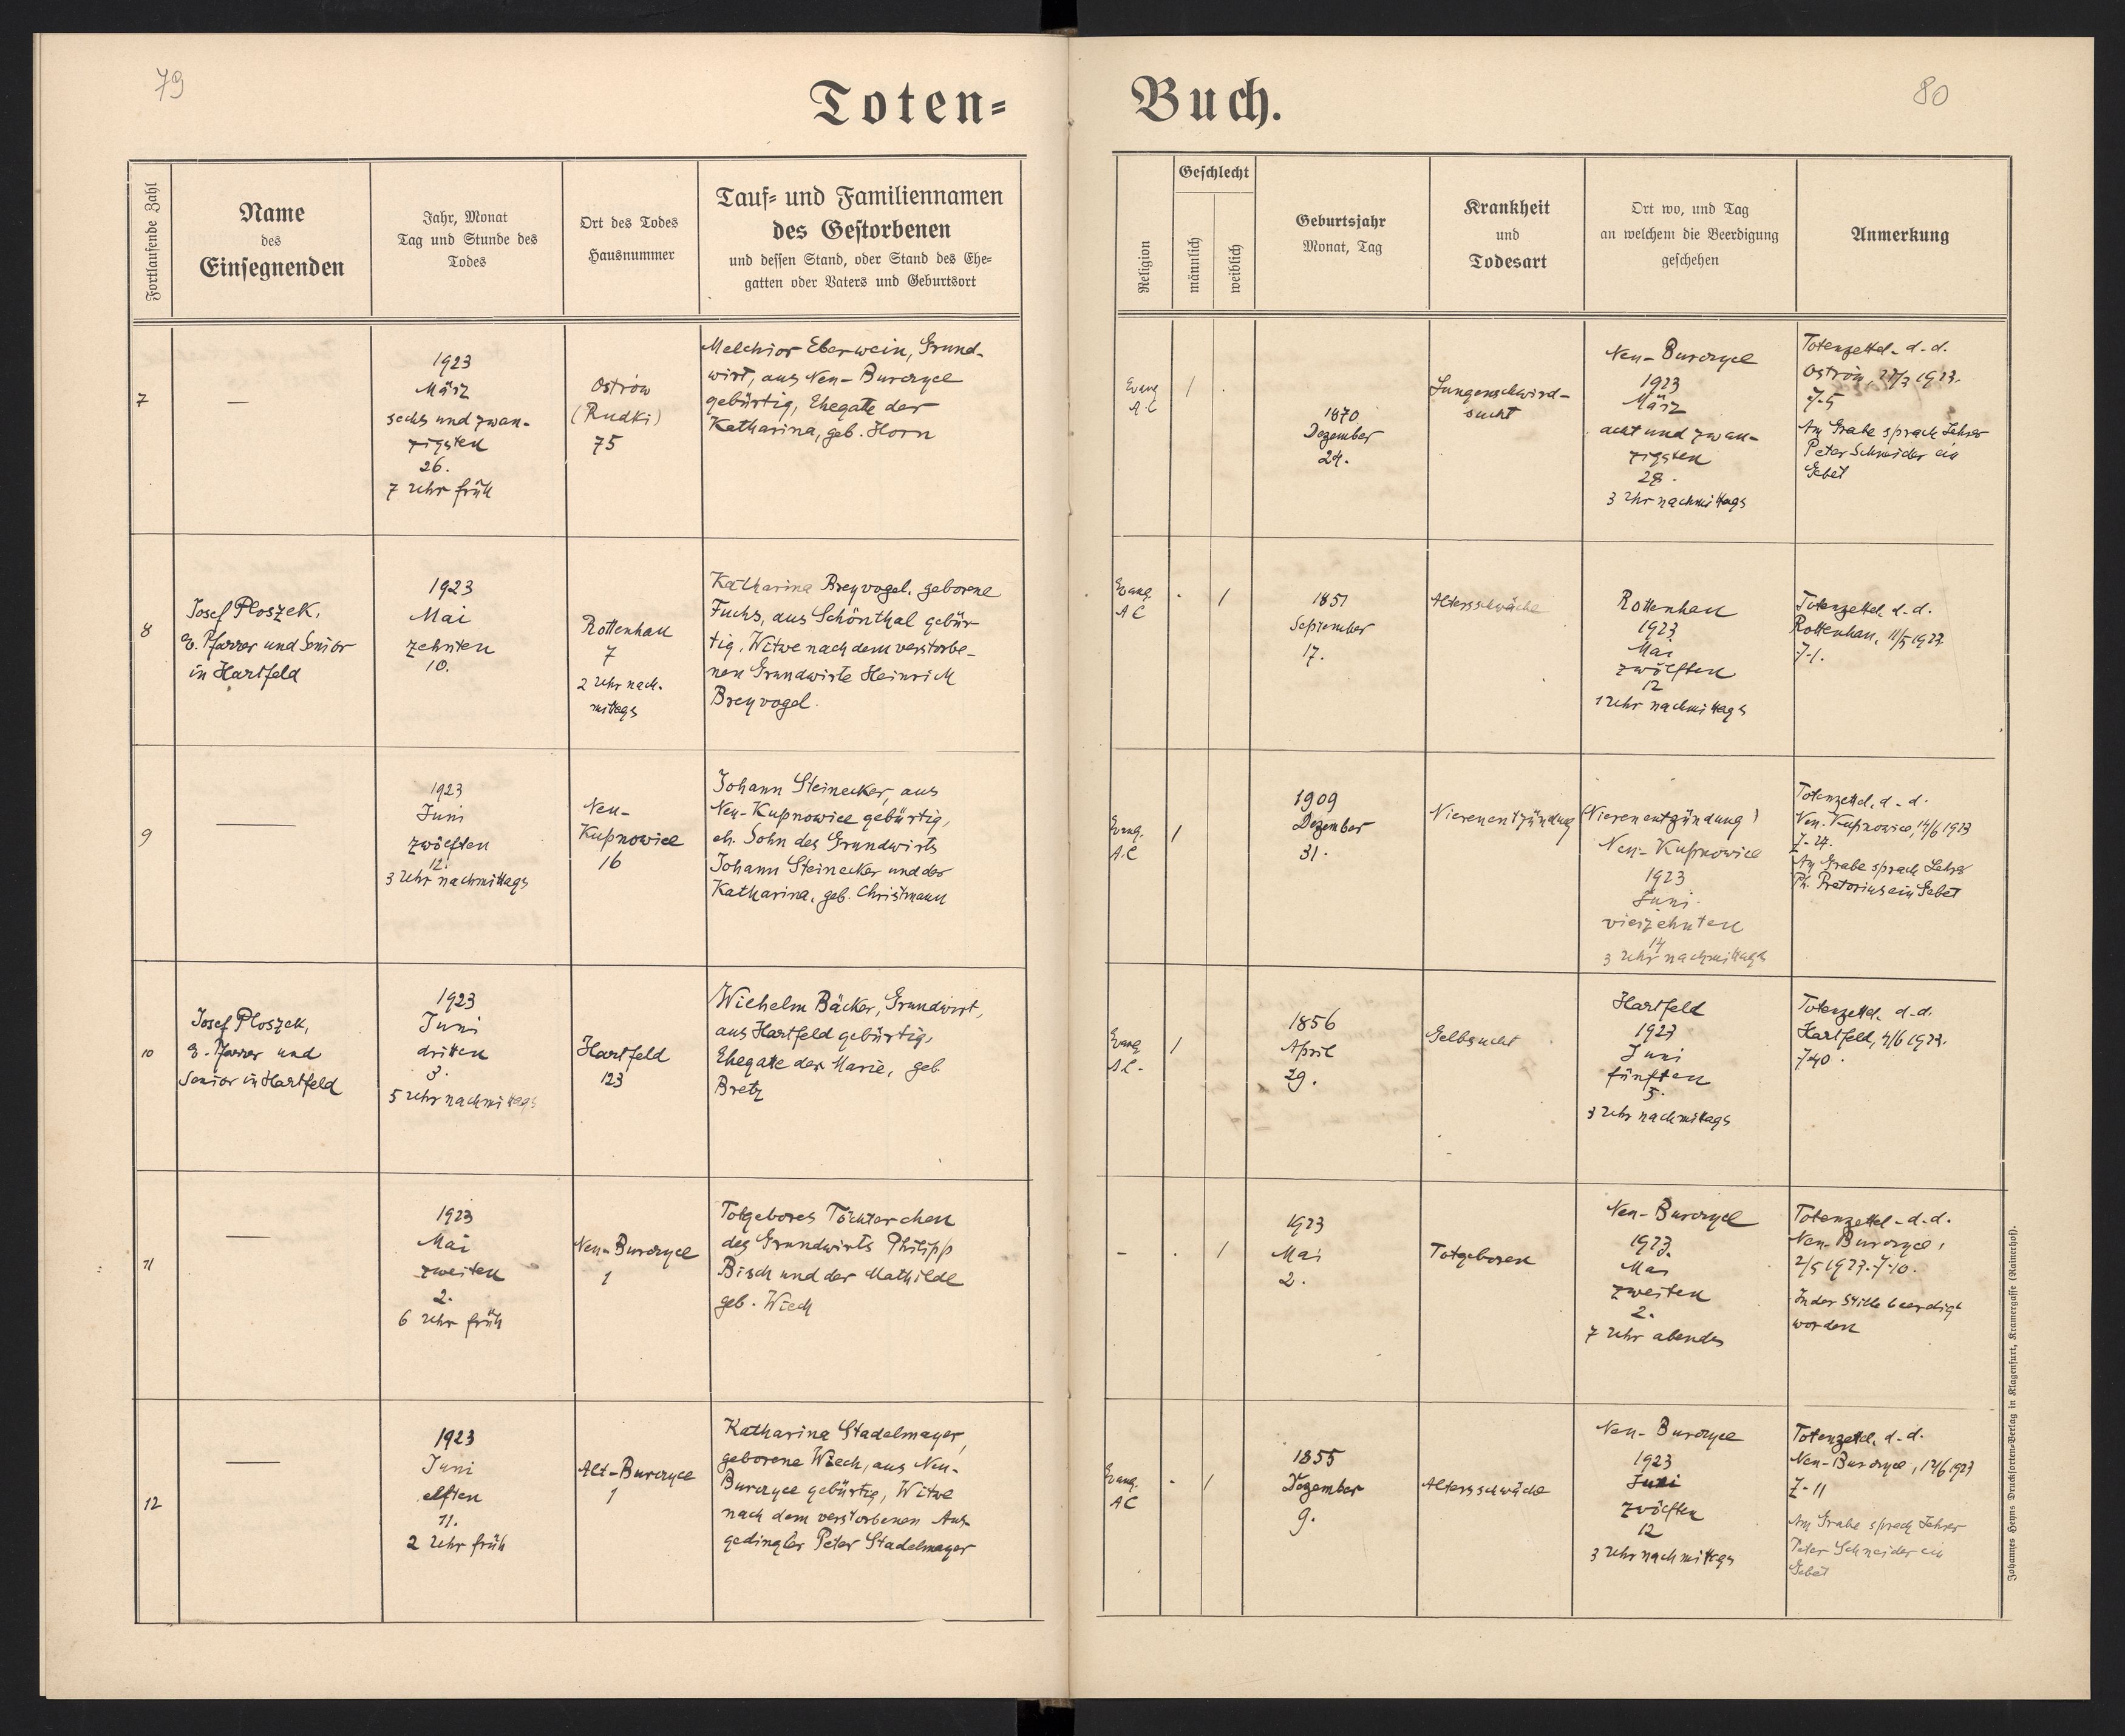 79
Toten=
Fortlaufende Zahl
Name
des
Einsegnenden
Jahr, Monat
Tag und Stunde des
Todes
Ort des Todes
Hausnummer
Tauf= und Familiennamen
des Gestorbenen
und dessen Stand, oder Stand des Ehe=
gatten oder Vaters und Geburtsort
7
—
1923
März
sechs und zwan-
zigsten
26.
7 Uhr früh
Ostrow
(Rudki)
75
Melchior Eberwein, Grund-
wirt, aus Neu-Burczyce
gebürtig, Ehegatte der
Katharina, geb. Horn
8
Josef Ploszek,
E. Pfarrer und Senior
in Hartfeld
1923
Mai
zehnten
10.
Rottenhan
7
2 Uhr nach-
mittags
Katharina Breyvogel, geborene
Fuchs, aus Schönthal gebür-
tig, Witwe nach dem verstorbe-
nen Grundwirte Heinrich
Breyvogel.
9
—
1923
Juni
zwölften
12.
3 Uhr nachmittags
Neu-
Kupnowice
16
Johann Steinecker, aus
Neu-Kupnowice gebürtig,
eh. Sohn des Grundwirts
Johann Steinecker und der
Katharina, geb. Christmann
10
Josef Ploszek,
E. Pfarrer und
Senior in Hartfeld
1923
Juni
dritten
3.
5 Uhr nachmittags
Hartfeld
123
Wilhelm Bäcker, Grundwirt,
aus Hartfeld gebürtig,
Ehegatte der Marie, geb.
Bretz
11
—
1923
Mai
zweiten
2.
6 Uhr früh
Neu-Burczyce
1
Totgebores Töchterchen
des Grundwirts Philipp
Bisch und der Mathilde
geb. Wiech
12
—
1923
Juni
elften
11.
2 Uhr früh
Alt-Burczyce
1
Katharina Stadelmayer,
geborene Wiech, aus Neu-
Burczyce gebürtig, Witwe
nach dem verstorbenen Aus-
gedingler Peter Stadelmayer
80
Buch.
Religion
Geschlecht
männlich
weiblich
Geburtsjahr
Monat, Tag
Krankheit
und
Todesart
Ort wo, und Tag
an welchem die Beerdigung
geschehen
Anmerkung
Evang
A.C
/
1870
Dezember
24.
Lungenschwind-
sucht
Neu-Burczyce
1923
März
acht und zwan-
zigsten
28.
3 Uhr nachmittags
Totenzettel d.d.
Ostrów, 1923.
Z-5
Am Grabe sprach Lehrer
Peter Schneider ein
Gebet
Evang.
A C
/
1851
September
17.
Altersschwäche
Rottenhan
1923
Mai
zwölften
12
1 Uhr nachmittags
Totenzettel d.d.
Rottenhan, 11/5 1923
Z-1.
Evang.
A.C
/
1909
Dezember
31.
Nierenentzündung
(Nierenentzündung)
Neu-Kupnowice
1923
Juni
vierzehnten
14
3 Uhr nachmittags
Totenzettel, d-d.
Neu-Kupnowice, 14/6 1923
Z-24.
Am Grabe sprach Lehrer
Ph. Pretorius ein Gebet
Evang.
A.C.
/
1856
April
29.
Gelbsucht
Hartfeld
1923
Juni
fünften
5.
3 Uhr nachmittags
Totenzettel, d-d.
Hartfeld, 4/6 1923.
Z-40.
–
/
1923
Mai
2.
Totgeboren
Neu-Burczyce
1923.
Mai
zweiten
2.
7 Uhr abends
Totenzettel-d.d.
Neu-Burczyce,
2/5 1923. Z-10.
In der Stille beerdigt
worden
Evang.
AC
/
1855
Dezember
9.
Altersschwäche
Neu-Burczyce
1923
Juni
zwölften
12
3 Uhr nachmittags
Totenzettel, d-d.
Neu-Burczyce, 12/6 1923
Z-11
Am Grabe sprach Lehrer
Peter Schneider ein
Gebet
Johannes Heyns Drucksorten=Verlag in Klagenfurt, Kramergasse (Rainerhof).